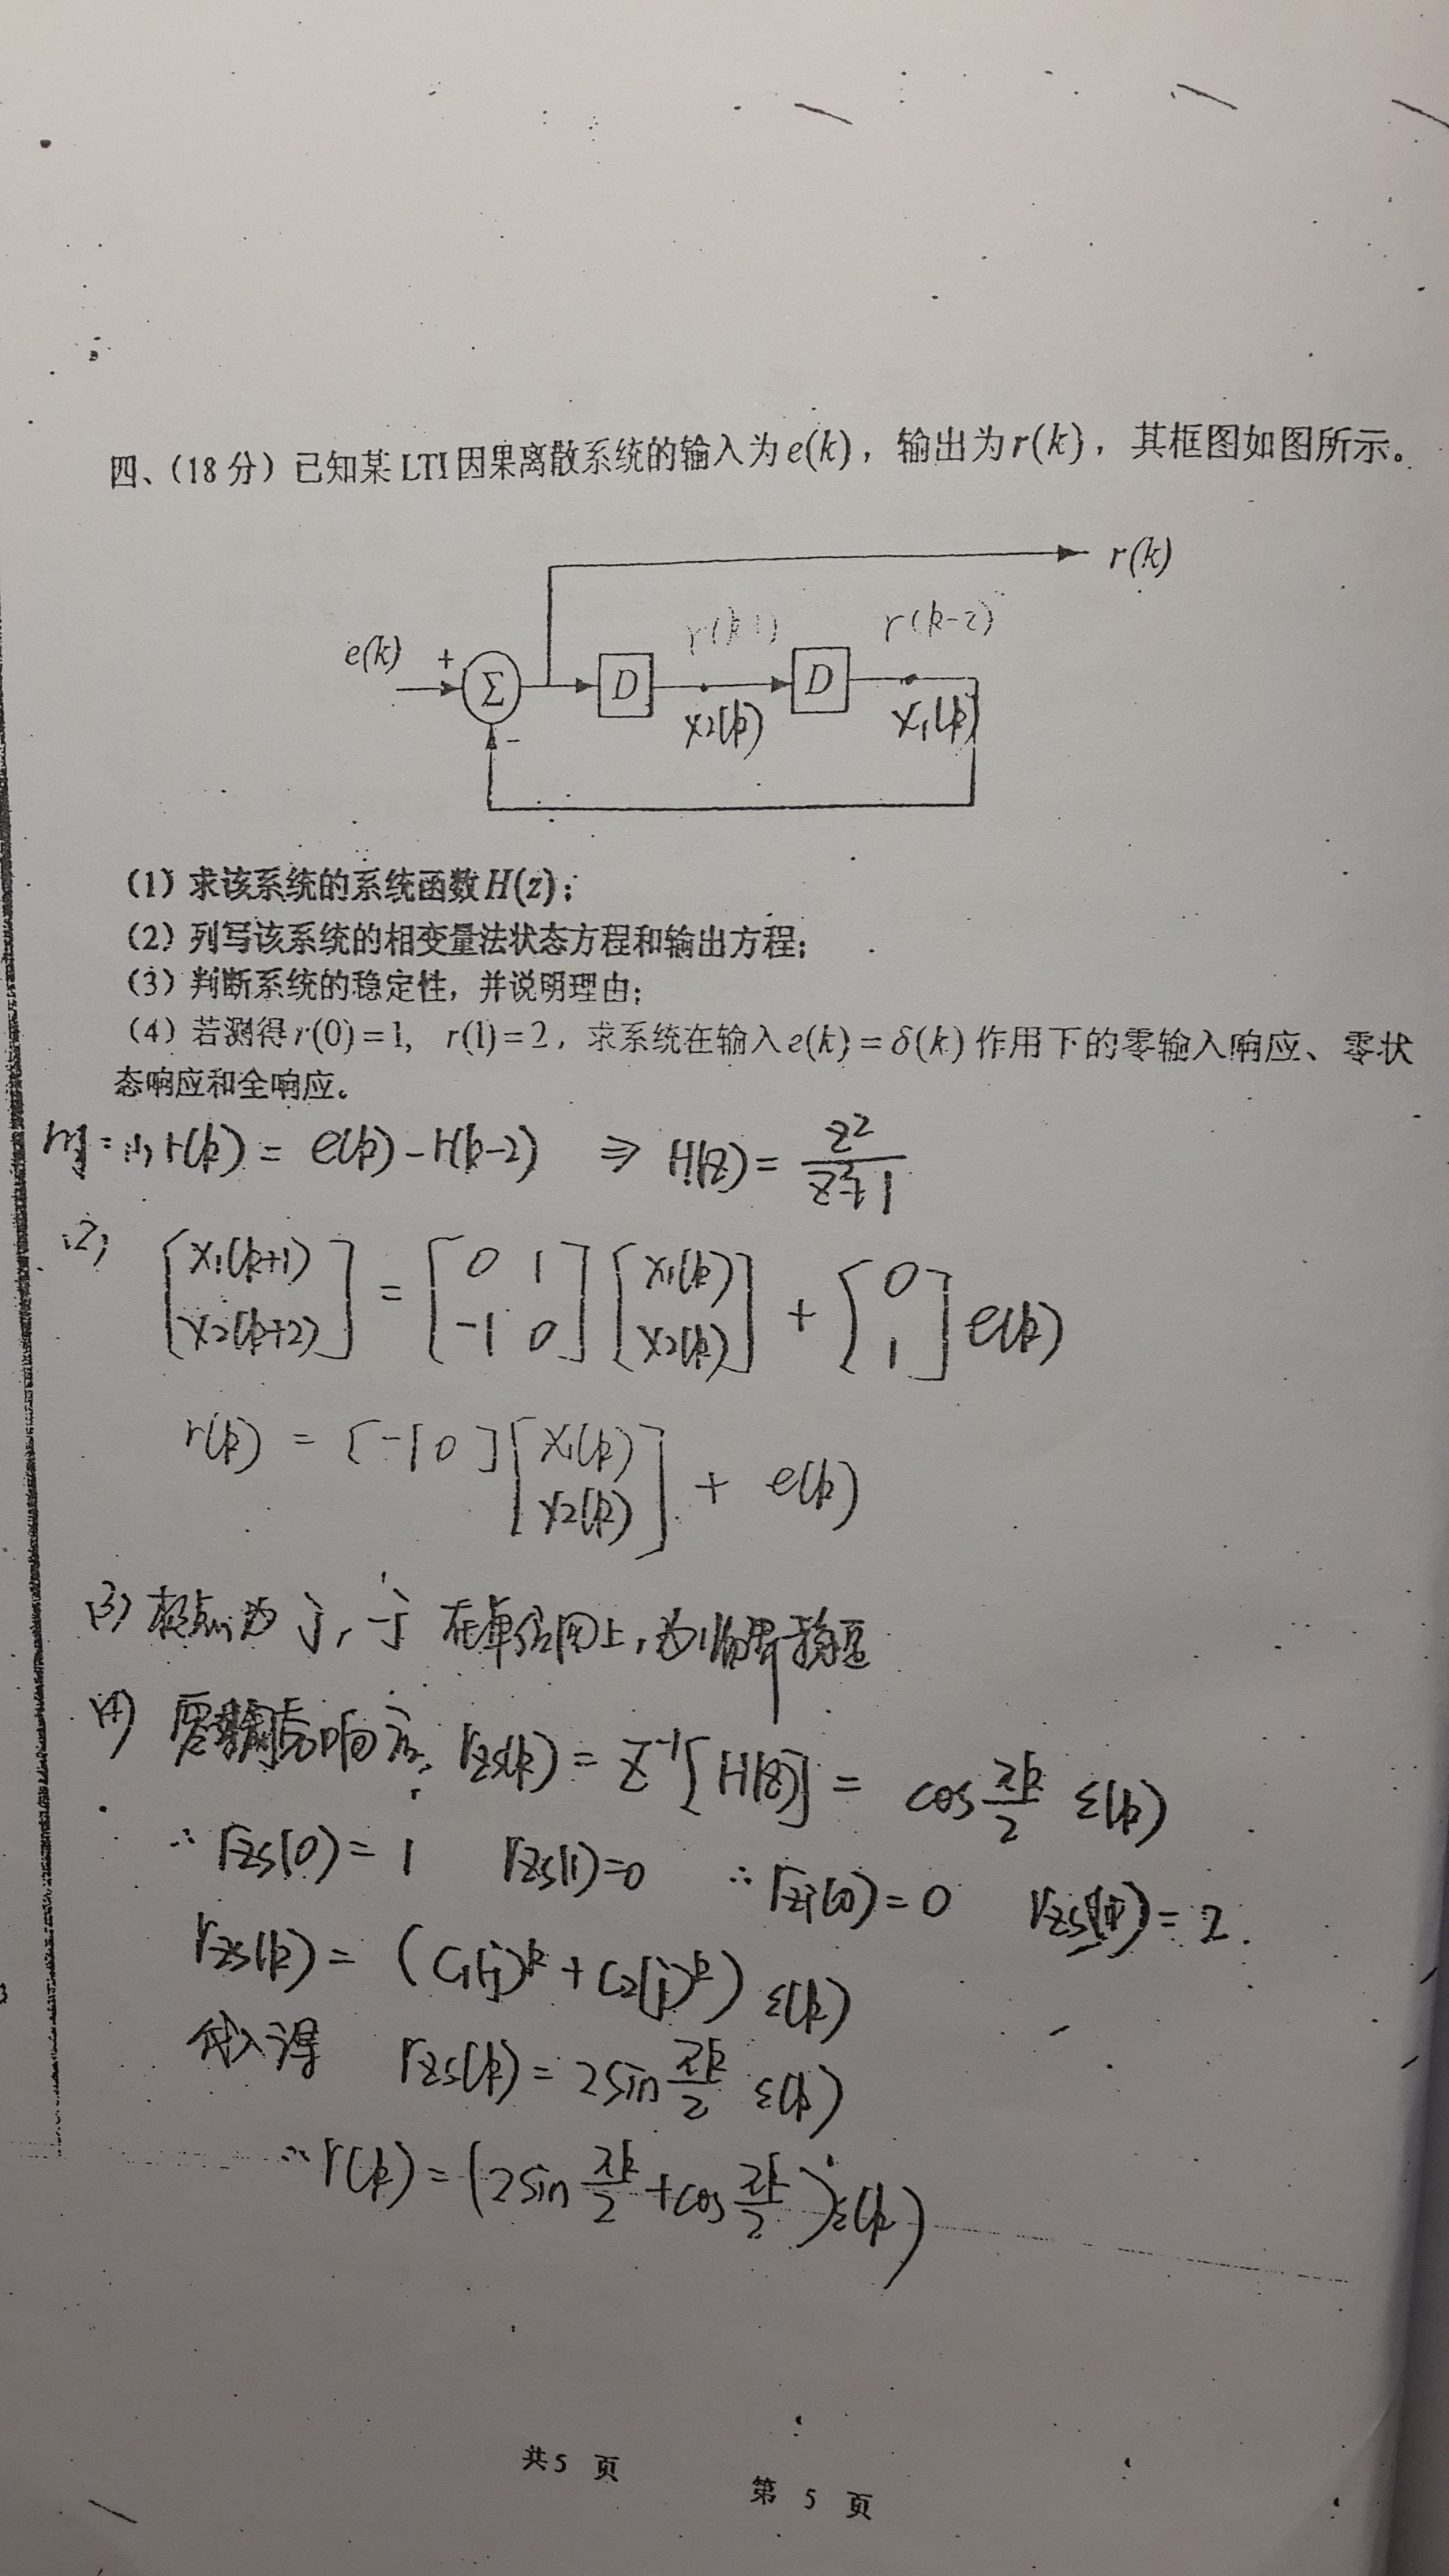 四、（18分）已知某LTI因果离散系统的输入为e(k)，输出为r(k)，其框图如图所示。
r(k)
r(k-1) r(k-2)
e(k) + Σ D D
x2(k) x1(k)
-
（1）求该系统的系统函数H(z)；
（2）列写该系统的相变量法状态方程和输出方程；
（3）判断系统的稳定性，并说明理由；
（4）若测得r(0)=1， r(1)=2，求系统在输入e(k)=δ(k)作用下的零输入响应、零状
态响应和全响应。
(1) r(k) = e(k) - r(k-2) ⇒ H(z) = z²/(z²+1)
(2) [x1(k+1) x2(k+2)] = [0 1 -1 0] [x1(k) x2(k)] + [0 1] e(k)
r(k) = [-1 0] [x1(k) x2(k)] + e(k)
(3) 极点为 j, -j 在单位圆上，为临界稳定
(4) 响应 rzs(k) = Z⁻¹[H(z)] = cos πk/2 ε(k)
∴ rzs(0) = 1 rzs(1)=0 ∴ rzi(0) = 0 rzs(1) = 2.
rzs(k) = (C1(j)^k + C2(j)^k) ε(k)
代入得 rzs(k) = 2sin πk/2 ε(k)
∴ r(k) = (2sin πk/2 + cos πk/2) ε(k)
共5 页 第 5 页